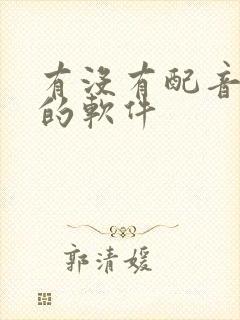 有沒有配音
的軟件
郭清媛